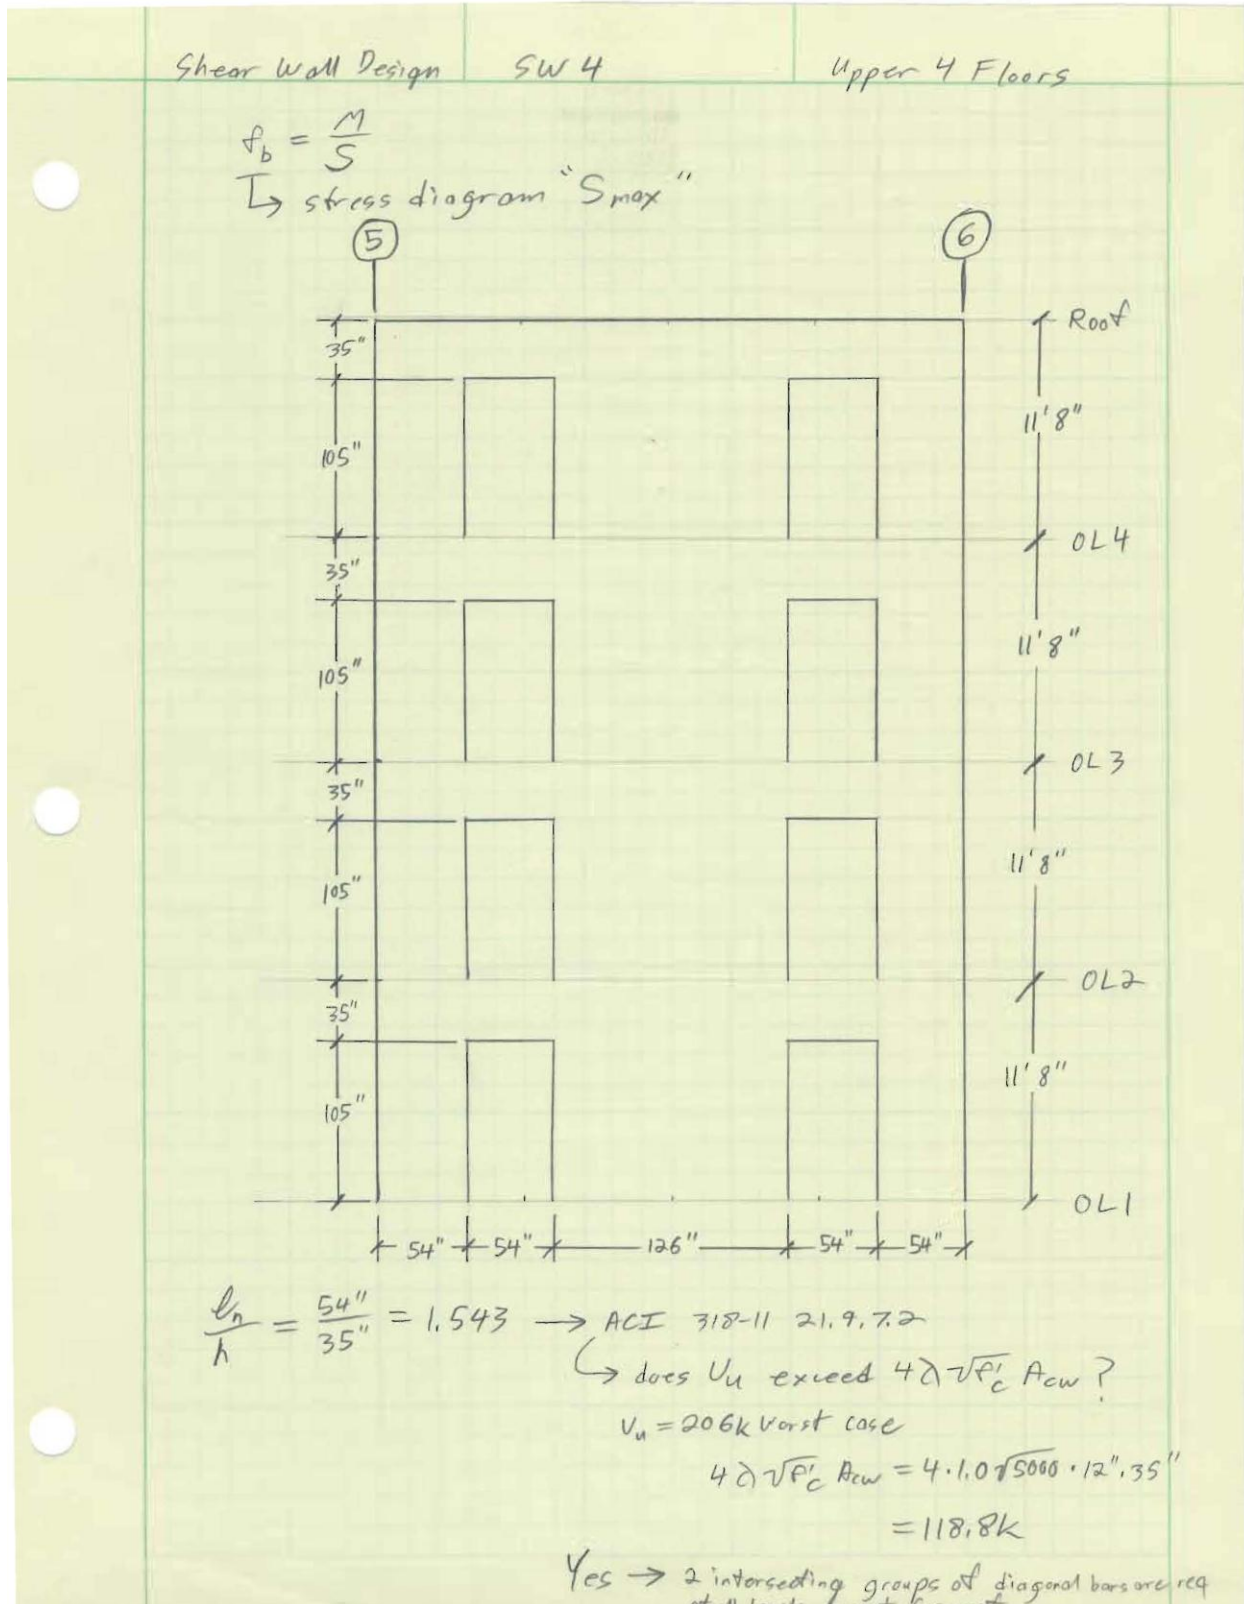 Shear Wall Design SW 4 Upper 4 Floors
f_b = M/S
↳ stress diagram "Smax"
5 6
35" Roof
105" 11'8"
OL4
35"
105" 11'8"
OL3
35"
105" 11'8"
OL2
35"
105" 11'8"
OL1
54" 54" 126" 54" 54"
ℓn/h = 54"/35" = 1.543 → ACI 318-11 21.9.7.2
↳ does Vu exceed 4λ√f'c Acw?
Vu = 206k worst case
4λ√f'c Acw = 4·1.0√5000·12"·35"
= 118.8k
Yes → 2 intersecting groups of diagonal bars are req